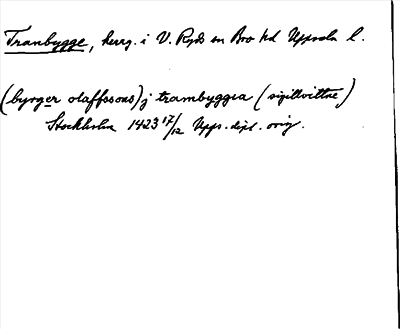 Tranbygge, herrg. i V. Ryds sn Bro hd Uppsala l.
(byrger olaffssons) j trambyggia (sigillvittne)
Stockholm 1423 17/12 Upps. dipl. orig.